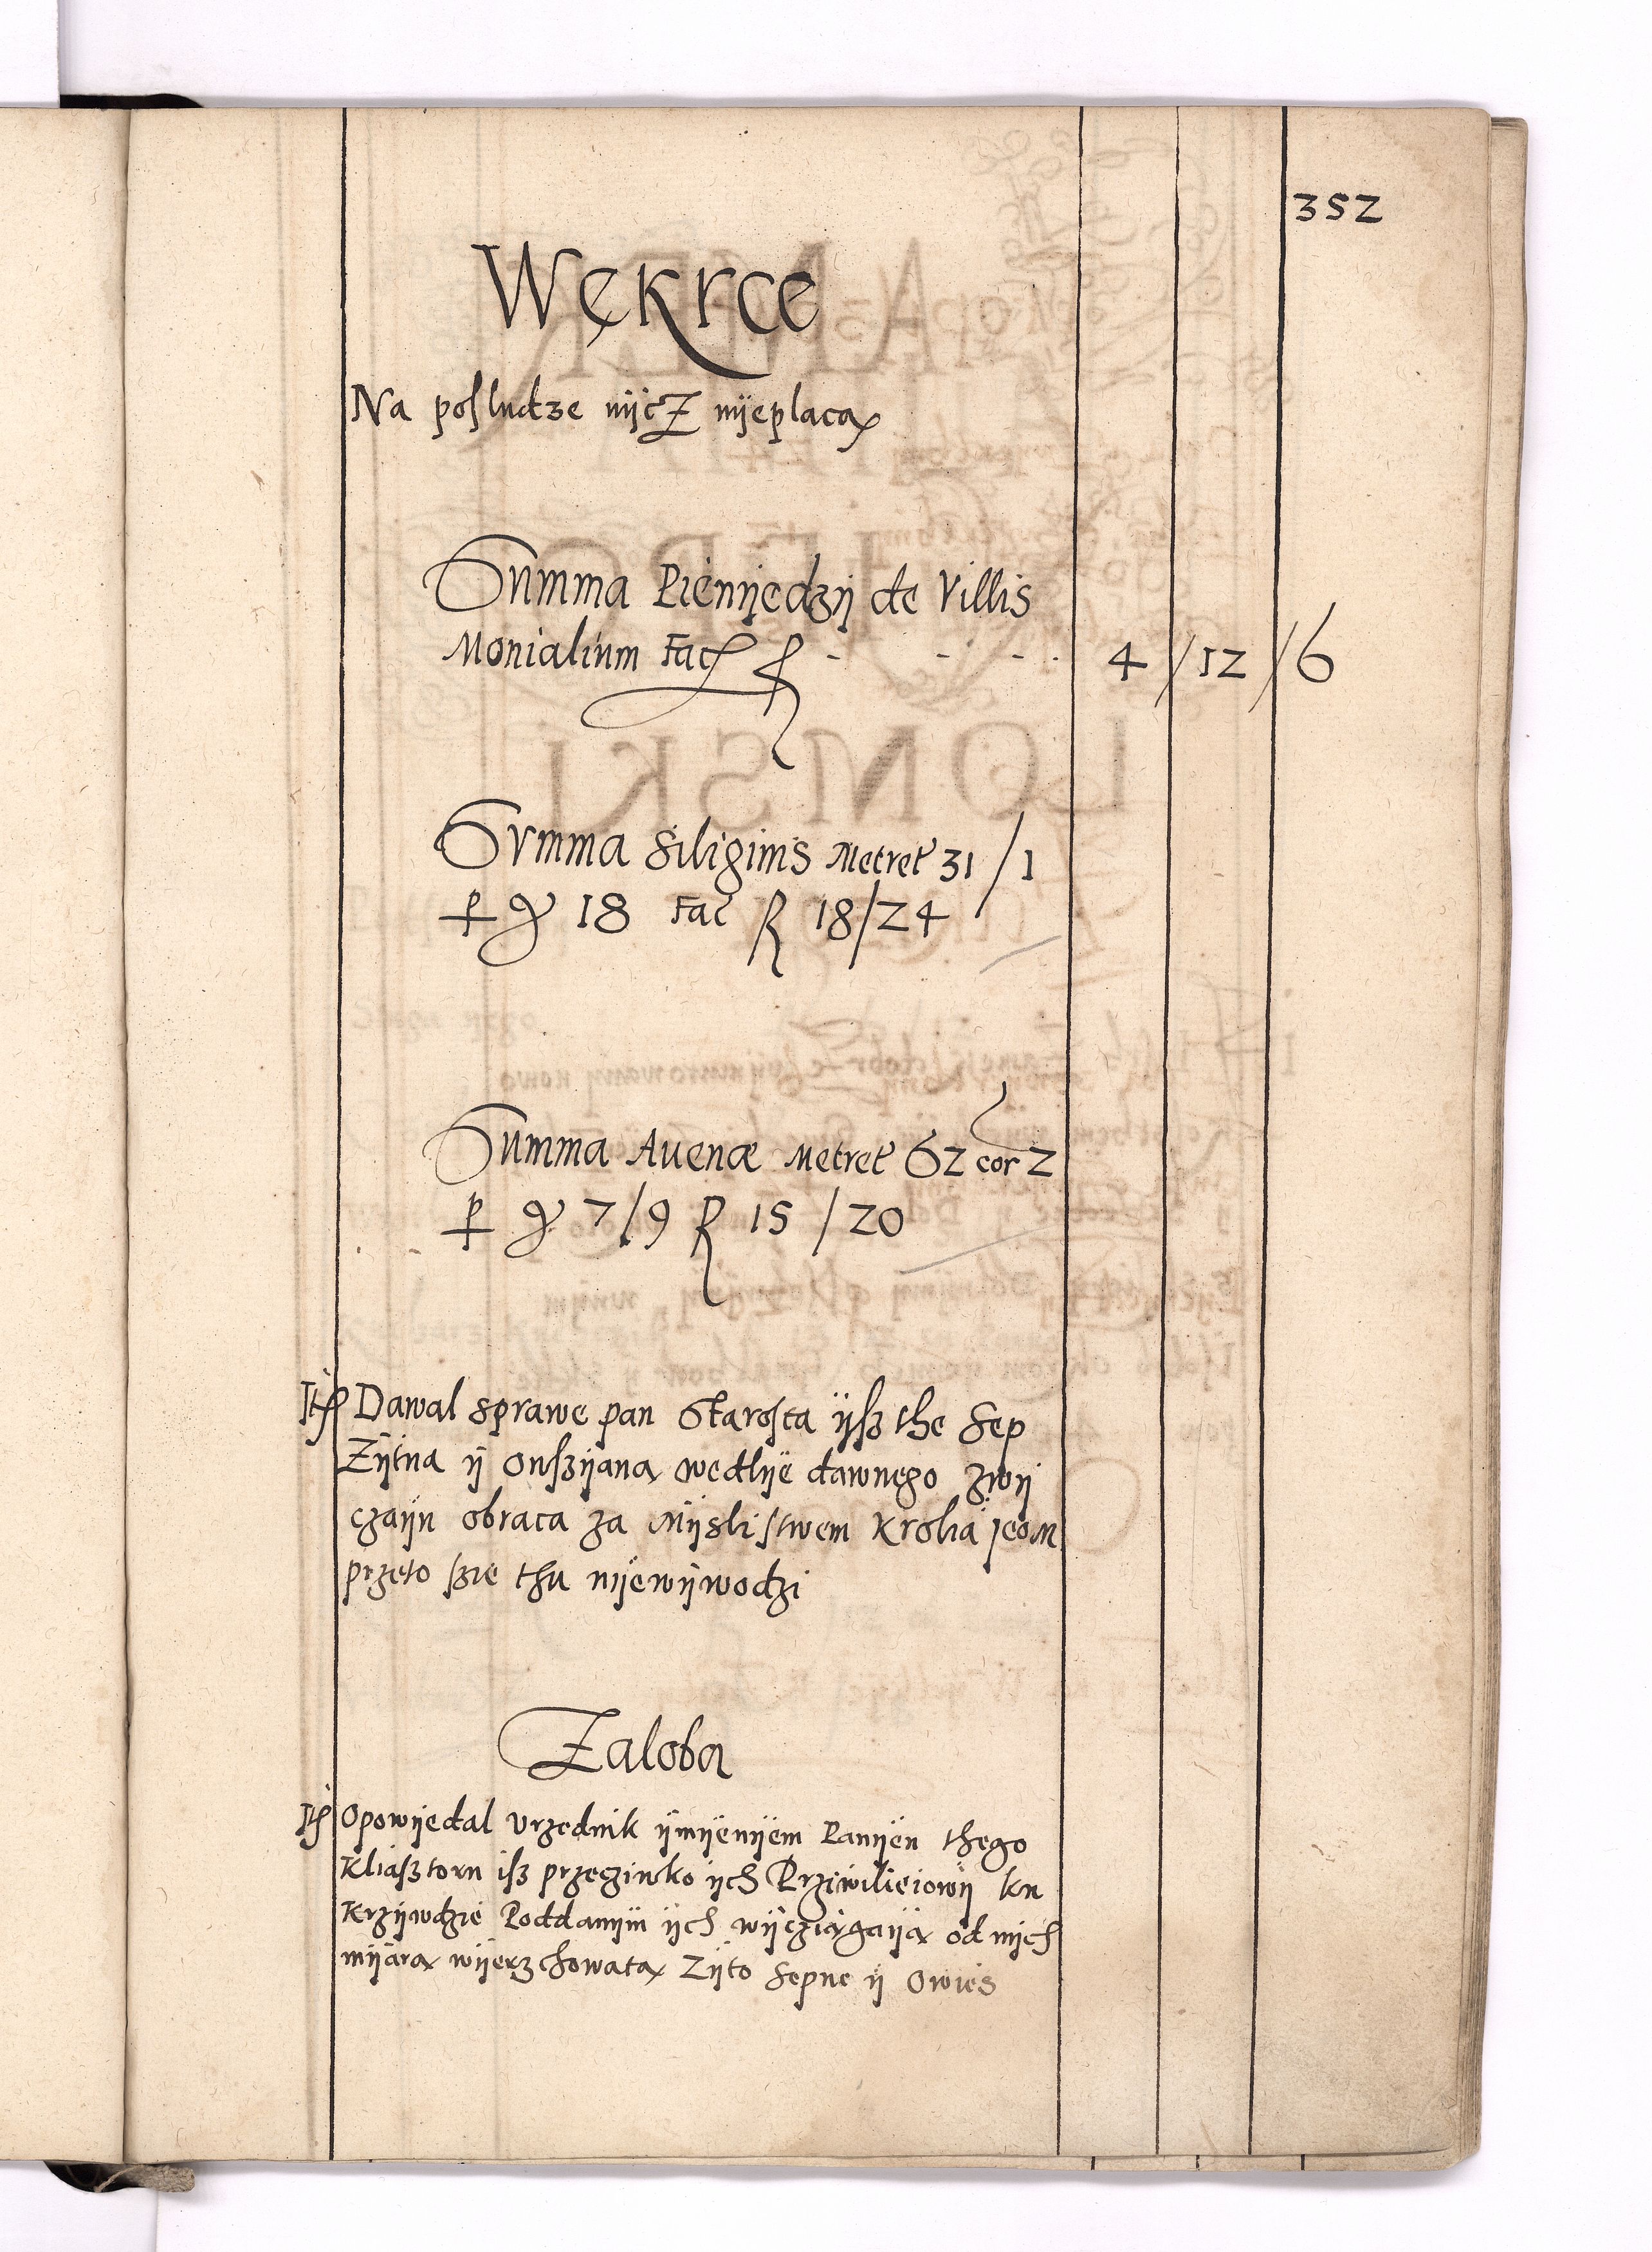 352
Wękrce
Na posludze nijcz nijeplacą
Summa Pienijedzij de Villis
Monialium Fac fl - - - - 4 / 12 / 6
Summa Siliginis Metret 31 / 1
p gr 18 Fac fl 18/24
Summa Auenæ Metret 62 cor 2
p gr 7/9 fl 15 / 20
Itē Dawal sprawe pan Starosta ijsz the Sep
Zijtną ij Owszijaną wedlije dawnego zwij
czaiju obraca za Mijslistwem Krolia jeoM
przeto szie thu nijewijwodzi
Zaloba
Itē Opowijedal Vrzednik ijmijenijem Panijen thego
Kliasztoru isz przeczinko ijch Prziwilieiowij ku
Krzijwdzie Poddanijm ijch wijcziągaiją od nijch
mijarą wijerzchowatą Zijto Sepne ij Owies